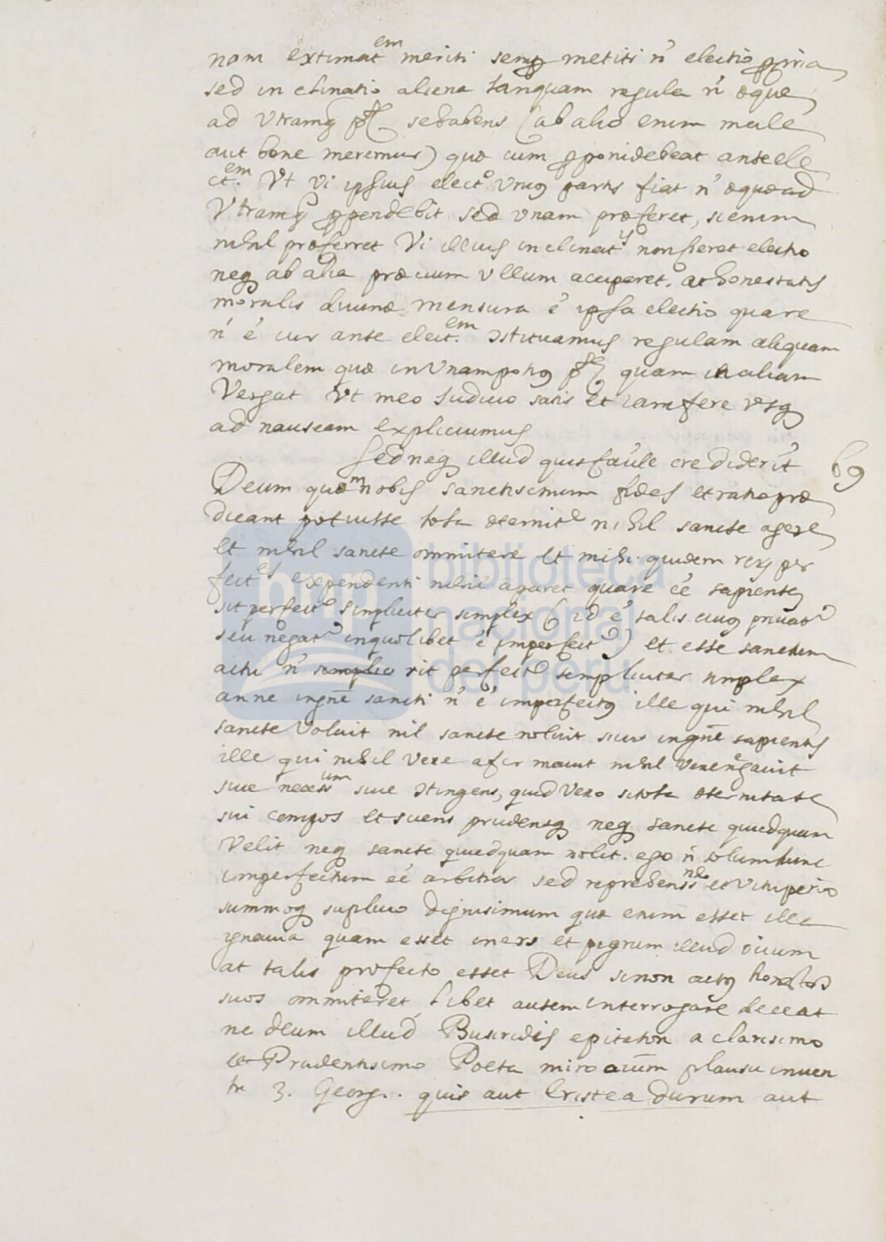 nam extimat^em meriti semp metiti n' electio ppria
sed inclinatio aliena tanquam regula n' æque
ad Utramq ptē se habens (ab alio enim male
aut bene meremur) quæ cum pponi debeat ante ele
ct^em. Ut vi ipsius elect^e unius partis fiat n' æque ad
Utramq ppendebit sed unam præferet, si enim
nihil præferret Vi illius inclinat^is non fieret electio
neq ab alia præcium ullum acciperet. at honestatis
moralis divinæ mensura ē ipsa electio quare
n' ē cur ante elect^em. Ɔstituamus regulam aliquam
moralem quæ in Unam potius ptē quam in aliam
Vergat Ut meo Judicio satis et iam fere usq
ad nauseam explicuimus
Sed neq illud quis facile crediderit 69
Deum quem nobis sanctissimum fides et ratio præ
dicant potuisse tota æternit^e nihil sancte agere
et nihil sancte ommitere et mihi quidem reiq per
fect^es expendenti nihil agaret quare ēē sapiens
sit perfect^o simpliciter simplex (id ē talis cuius privat^o
seu negat^o in quolibet ē imperfect^o) et esse sanctum
actu n' sit perfect^o simpliciter simplex
anne ingnē sancti n' ē imperfectus ille qui nihil
sancte Voluit nil sancte noluit sicut ingnē sapientis
ille qui nihil Vere afirmavit nihil Vere negavit
sive necess^um sive Ɔtingens, quid Vero si tota æternitate
sui compos et sciens prudensq neq sancte quidquam
Velit neq sancte quidquam nolit. ego n' solum hunc
imperfectum ēē arbitror sed reprehens^ne et vituperio
summoq suplicio dignissimum quæ enim esset illa
ignavia quam esset iners et pigrum illud otium
at talis profecto esset Deus si non actus
suos ommiteret libet autem interrogare deceat
ne deum illud Busiridis epiteton a clarissimo
et Prudentissimo Poeta miro plausu inven
t^m 3. Georg.. quis aut Eristea durum aut